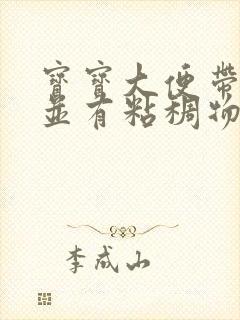 寶寶大便帶
並有粘稠物
李成山